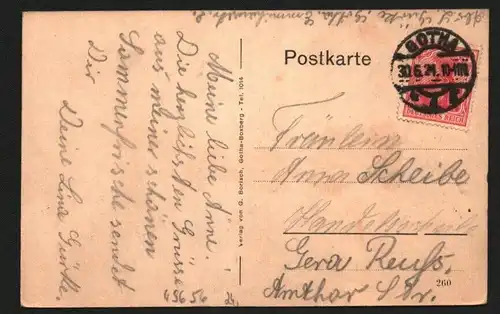 Postkarte
GOTHA
30.6.21. 10-11V.
DEUTSCHES REICH
Meine liebe Anne!
Die herzlichsten Grüsse
aus meiner schönen
Sommerfrische sendet
Dir
Deine Lina Gürke.
Verlag von G. Bortsch, Gotha-Boxberg - Tel. 1014
Fräulein
Anna Scheibe
Gera Reuß.
Amthor Str.
260
45656